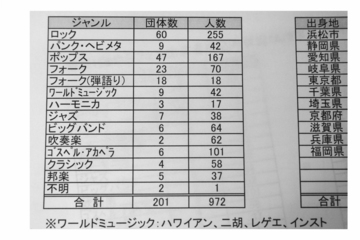 ジャンル 団体数 人数 出身地
ロック 60 255 浜松市
パンク・ヘビメタ 9 42 静岡県
ポップス 47 167 愛知県
フォーク 23 70 岐阜県
フォーク(弾語り) 18 18 東京都
ワールドミュージック 9 42 千葉県
ハーモニカ 3 17 埼玉県
ジャズ 7 38 京都府
ビッグバンド 6 64 滋賀県
吹奏楽 2 62 兵庫県
ゴスペル・アカペラ 6 101 福岡県
クラシック 4 58
邦楽 5 37
不明 2 1
合計 201 972
※ワールドミュージック:ハワイアン、二胡、レゲエ、インスト